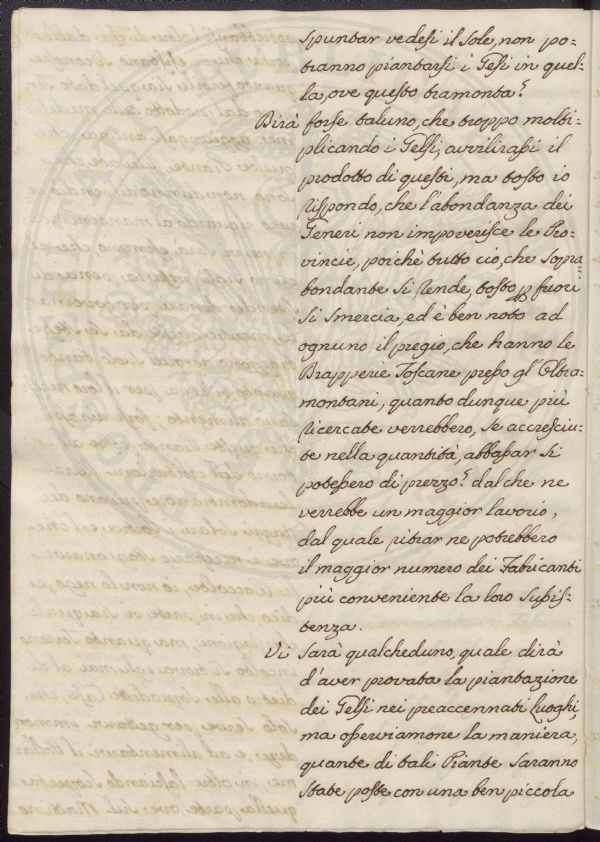 spuntar vedesi il Sole, non po-
tranno piantarsi i Gelsi in quel-
la, ove questo tramonta?
Dirà forse taluno, che troppo molti-
plicando i Gelsi, avvilirassi il
prodotto di questi, ma tosto io
rispondo, che l'abondanza dei
Generi non impoverisce le Pro-
vincie, poichè tutto ciò, che sopra-
bondante si rende, tosto p fuori
si smercia, ed è ben noto ad
ognuno il pregio, che hanno le
Drapperie Toscane presso gl'Oltra-
montani, quanto dunque più
ricercate verrebbero, se accresciu-
te nella quantità, abbassar si
potessero di prezzo? dal che ne
verrebbe un maggior lavorio,
dal quale ritrar ne potrebbero
il maggior numero dei Fabricanti
più conveniente la loro sussis-
tenza.
Vi sarà qualcheduno, quale dirà
d'aver provata la piantazione
dei Gelsi nei preaccennati Luoghi,
ma osserviamone la maniera,
quante di tali Piante saranno
state poste con una ben piccola